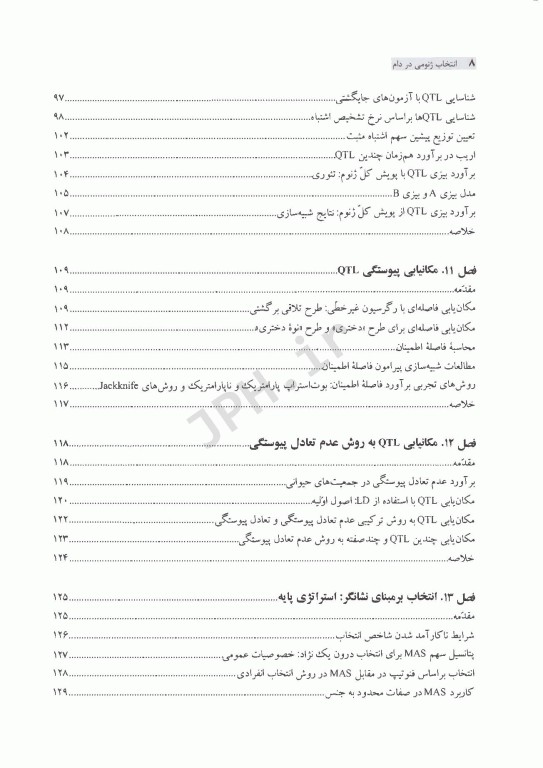 ۸ انتخاب ژنومی در دام
شناسایی QTL با آزمون‌های جایگشتی ۹۷
شناسایی QTLها براساس نرخ تشخیص اشتباه ۹۸
تعیین توزیع پیشین سهم اشتباه مثبت ۱۰۲
اریب در برآورد هم‌زمان چندین QTL ۱۰۳
برآورد بیزی QTL با پویش کلّ ژنوم: تئوری ۱۰۴
مدل بیزی A و بیزی B ۱۰۵
برآورد بیزی QTL از پویش کلّ ژنوم: نتایج شبیه‌سازی ۱۰۷
خلاصه ۱۰۸
فصل ۱۱. مکانیابی پیوستگی QTL ۱۰۹
مقدّمه ۱۰۹
مکان‌یابی فاصله‌ای با رگرسیون غیرخطّی: طرح تلاقی برگشتی ۱۰۹
مکان‌یابی فاصله‌ای برای طرح «دختری» و طرح «نوهٔ دختری» ۱۱۲
محاسبهٔ فاصلهٔ اطمینان ۱۱۳
مطالعات شبیه‌سازی پیرامون فاصلهٔ اطمینان ۱۱۵
روش‌های تجربی برآورد فاصلهٔ اطمینان: بوت‌استراپ پارامتریک و ناپارامتریک و روش‌های Jackknife ۱۱۶
خلاصه ۱۱۷
فصل ۱۲. مکانیابی QTL به روش عدم تعادل پیوستگی ۱۱۸
مقدّمه ۱۱۸
برآورد عدم تعادل پیوستگی در جمعیت‌های حیوانی ۱۱۹
مکان‌یابی QTL با استفاده از LD: اصول اوّلیه ۱۲۰
مکان‌یابی QTL به روش ترکیبی عدم تعادل پیوستگی و تعادل پیوستگی ۱۲۲
مکان‌یابی چندین QTL و چندصفته به روش عدم تعادل پیوستگی ۱۲۳
خلاصه ۱۲۴
فصل ۱۳. انتخاب برمبنای نشانگر: استراتژی پایه ۱۲۵
مقدّمه ۱۲۵
شرایط ناکارآمد شدن شاخص انتخاب ۱۲۶
پتانسیل سهم MAS برای انتخاب درون یک نژاد: خصوصیات عمومی ۱۲۷
انتخاب براساس فنوتیپ در مقابل MAS در روش انتخاب انفرادی ۱۲۸
کاربرد MAS در صفات محدود به جنس ۱۲۹
JPH.ir